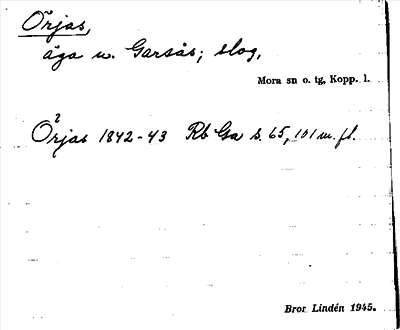 Örjas,
äga u. Garsås; slog.
Mora sn o. tg, Kopp. l.
Örjas 1842-43 Rb Ga s. 65, 101 m. fl.
Bror Lindén 1945.